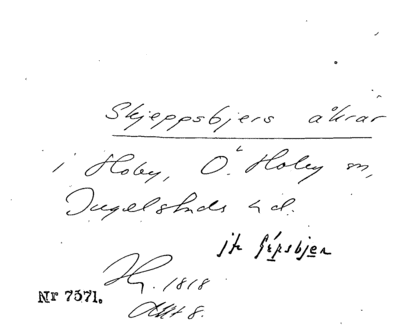 Skjeppsbjers åkrar
i Hoby, Ö. Hoby sn,
Ingelstads hd.
jfr Gepsbjer
Hy. 1818
Akt 8.
Nr 7571.